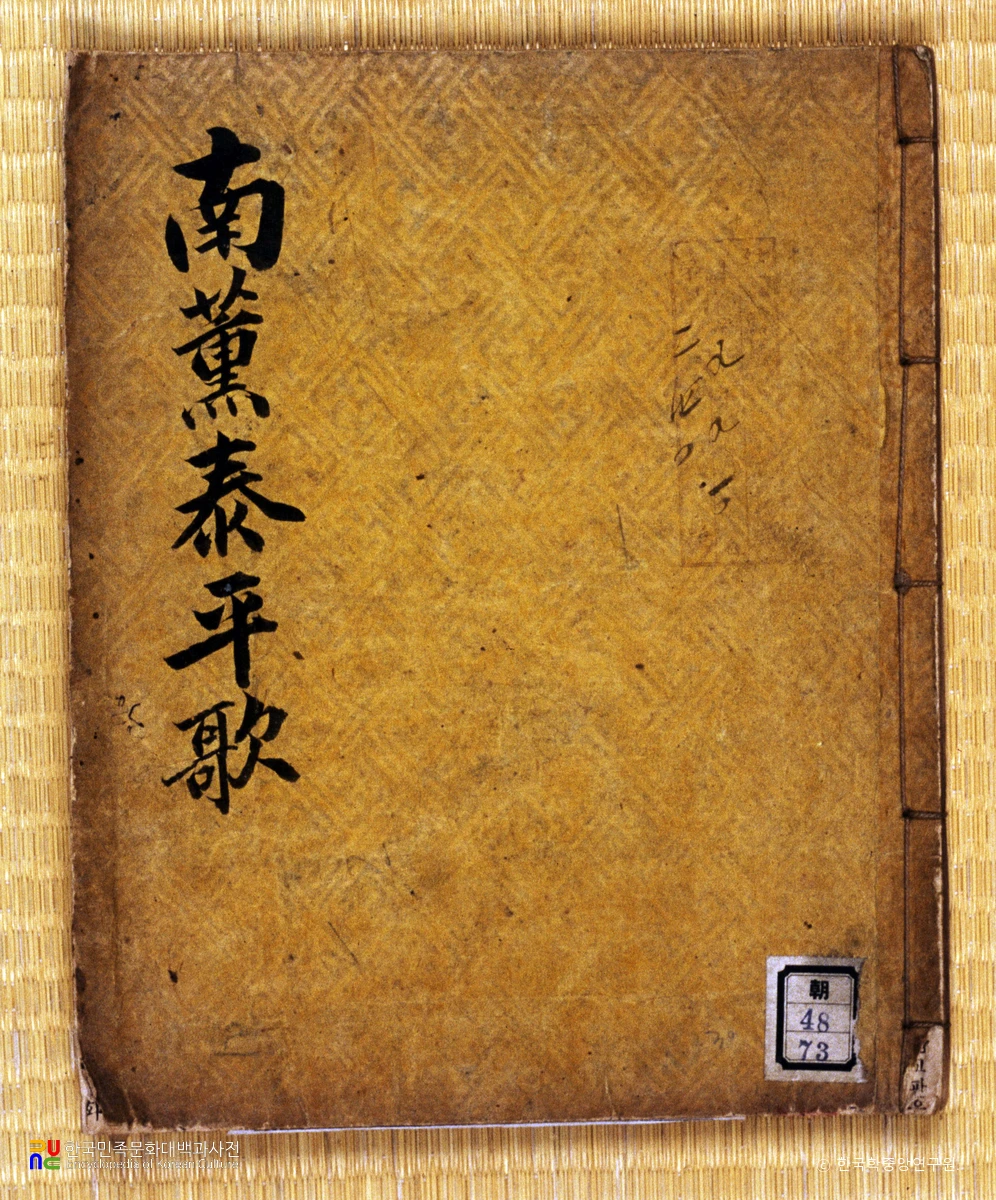 南薰泰平歌
朝
48
73
한국민족문화대백과사전
Encyclopedia of Korean Culture
© 한국학중앙연구원